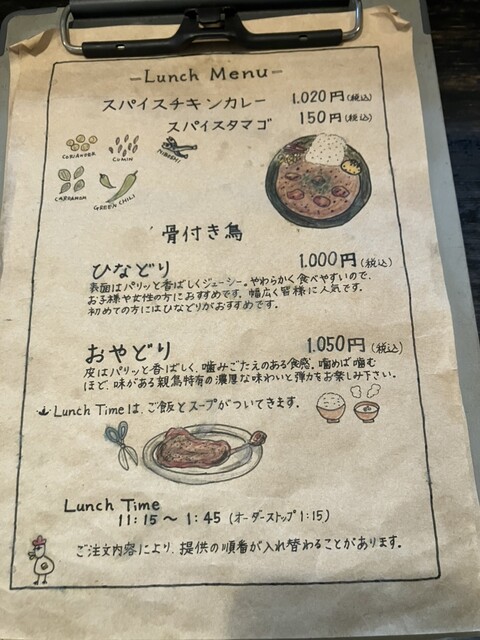 -Lunch Menu-
スパイスチキンカレー 1.020円(税込)
スパイスタマゴ 150円(税込)
CORIANDER
CUMIN
CARDAMON
GREEN CHILI
骨付き鳥
ひなどり 1.000円(税込)
表面はパリッと香ばしくジューシー。やわらかく食べやすいので、
お子様や女性の方におすすめです。幅広く皆様に人気です。
初めての方にはひなどりがおすすめです。
おやどり 1.050円(税込)
皮はパリッと香ばしく、噛みごたえのある食感。噛めば噛む
ほど、味がある親鳥特有の濃厚な味わいと弾力をお楽しみ下さい。
Lunch Timeは、ご飯とスープがついてきます。
Lunch Time
11:15〜1:45 (オーダーストップ1:15)
ご注文内容により、提供の順番が入れ替わることがあります。